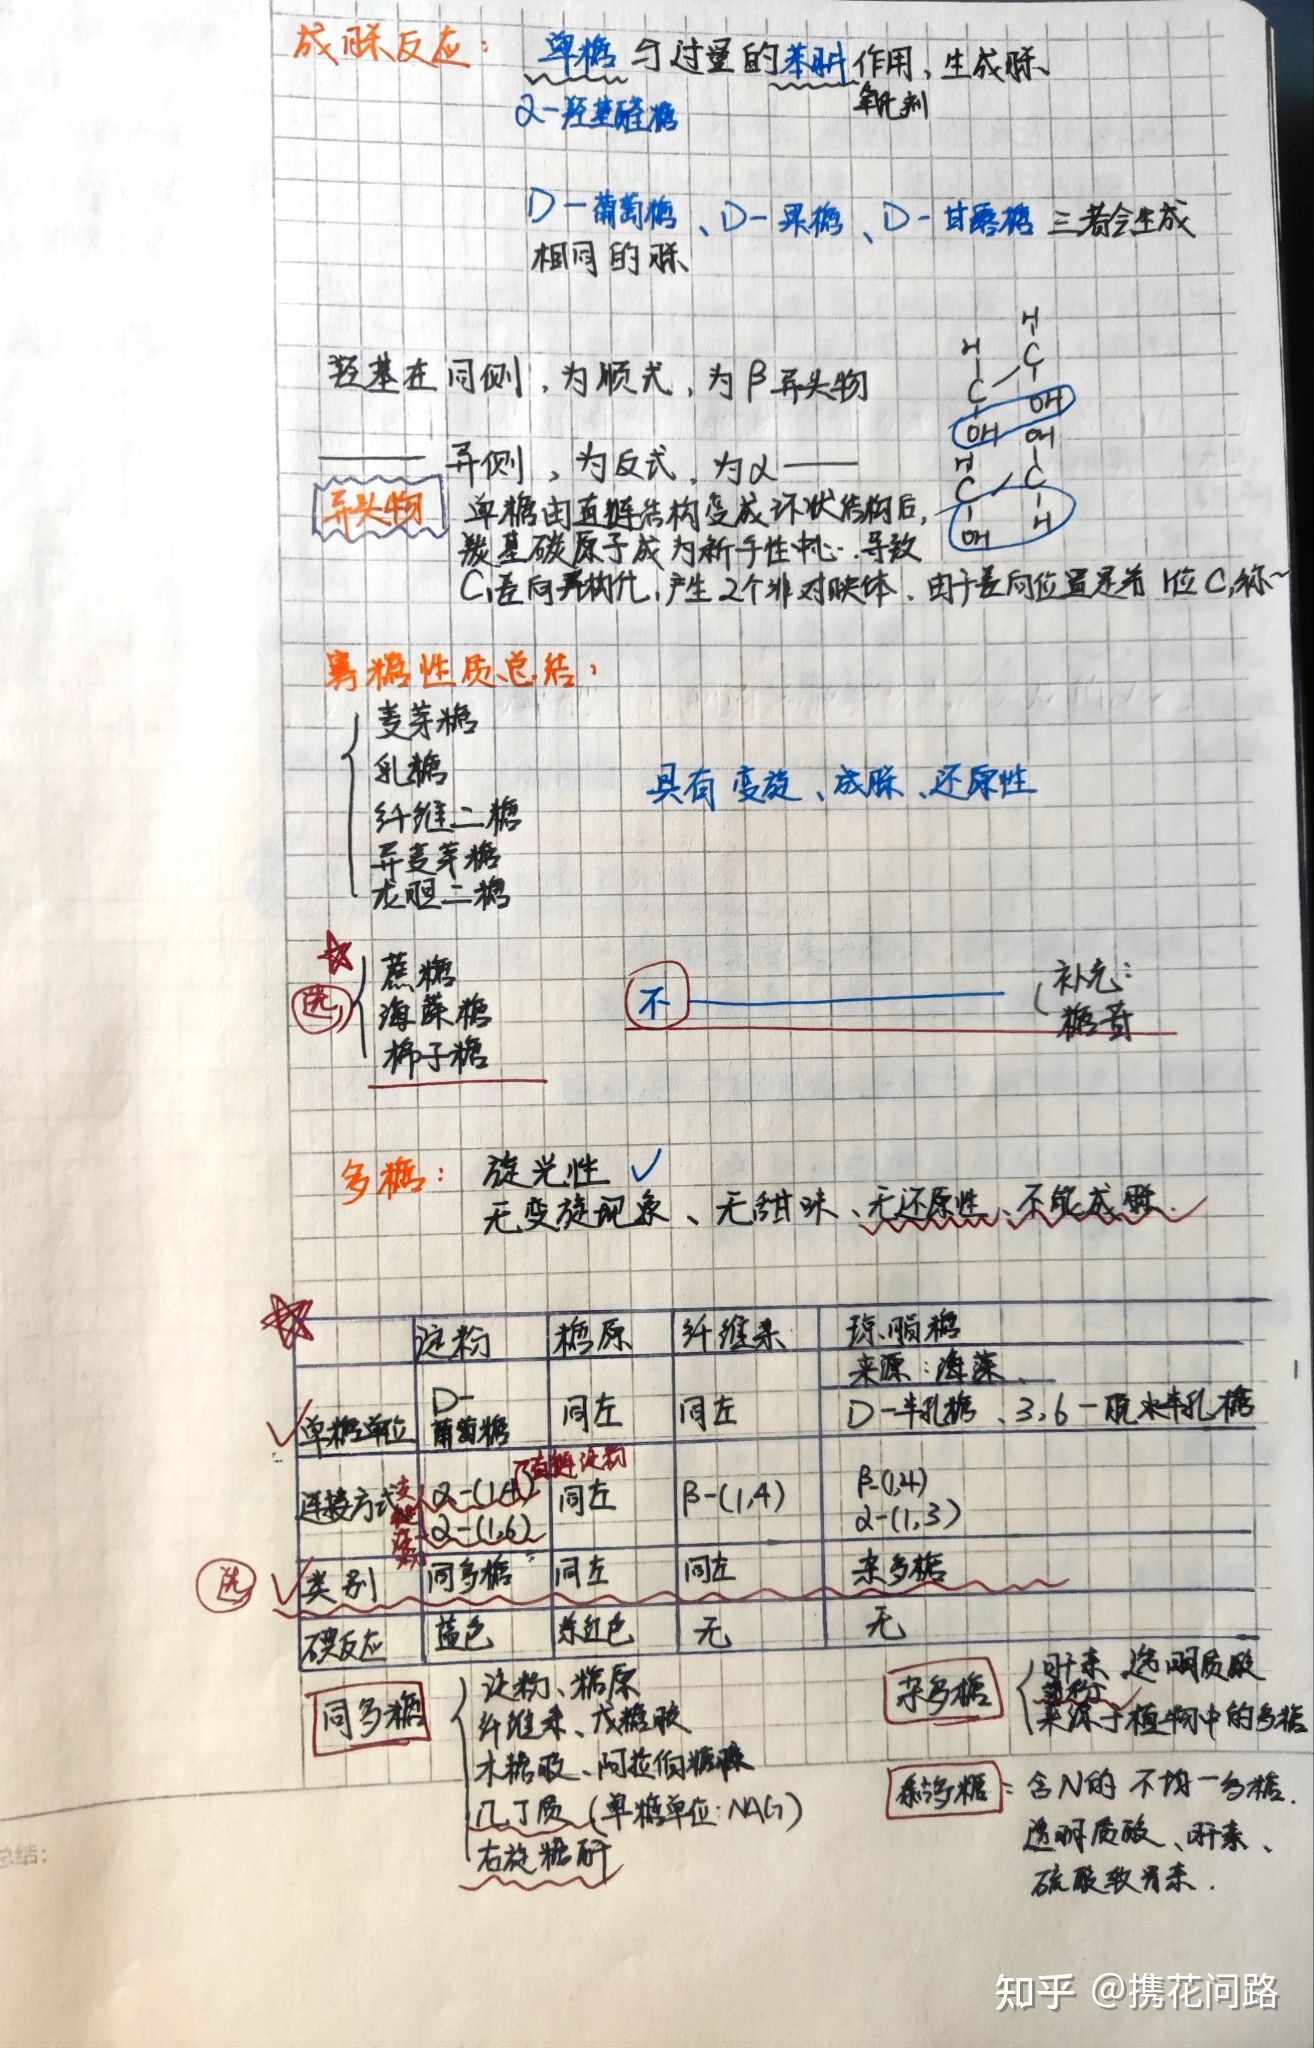 成脎反应：
单糖与过量的苯肼作用，生成脎、
α-羟基醛糖
氧化剂
D-葡萄糖、D-果糖、D-甘露糖三者会生成
相同的脎
羟基在同侧，为顺式，为β异头物
异侧，为反式，为α
H
H
C
C
OH
OH
OH
H
C
C
OH
H
异头物
单糖由直链结构变成环状结构后，
羰基碳原子成为新手性中心，导致
C₁差向异构化，产生2个非对映体，由于差向位置是着1位C，称~
寡糖性质总结：
麦芽糖
乳糖
纤维二糖
异麦芽糖
龙胆二糖
具有变旋、成脎、还原性
选
蔗糖
海藻糖
棉子糖
不
补充：
糖苷
多糖：
旋光性 ✓
无变旋现象、无甜味、无还原性、不能成脎.
淀粉 糖原 纤维素 琼脂糖
来源：海藻
✓ 单糖单位 D-葡萄糖 同左 同左 D-半乳糖、3,6-脱水半乳糖
直链淀粉
连接方式 α-(1,4) 同左 β-(1,4) β-(1,4)
支链淀粉 α-(1,6) α-(1,3)
选 ✓ 类别 同多糖 同左 同左 杂多糖
碘反应 蓝色 紫红色 无 无
同多糖
淀粉、糖原
纤维素、戊糖胶
木糖胶、阿拉伯糖胶
几丁质（单糖单位：NAG）
右旋糖酐
杂多糖
肝素、透明质酸
来源于植物中的多糖
黏多糖：含N的不均一多糖.
透明质酸、肝素、
硫酸软骨素.
总结：
知乎 @携花问路